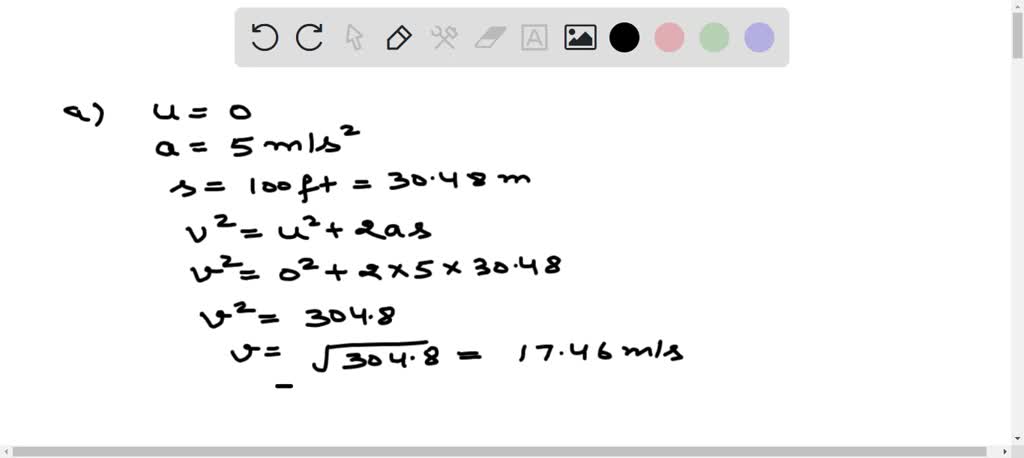 A
a) u = 0
a = 5 m/s²
s = 100ft = 30.48 m
v² = u² + 2as
v² = 0² + 2 × 5 × 30.48
v² = 304.8
v = √304.8 = 17.46 m/s